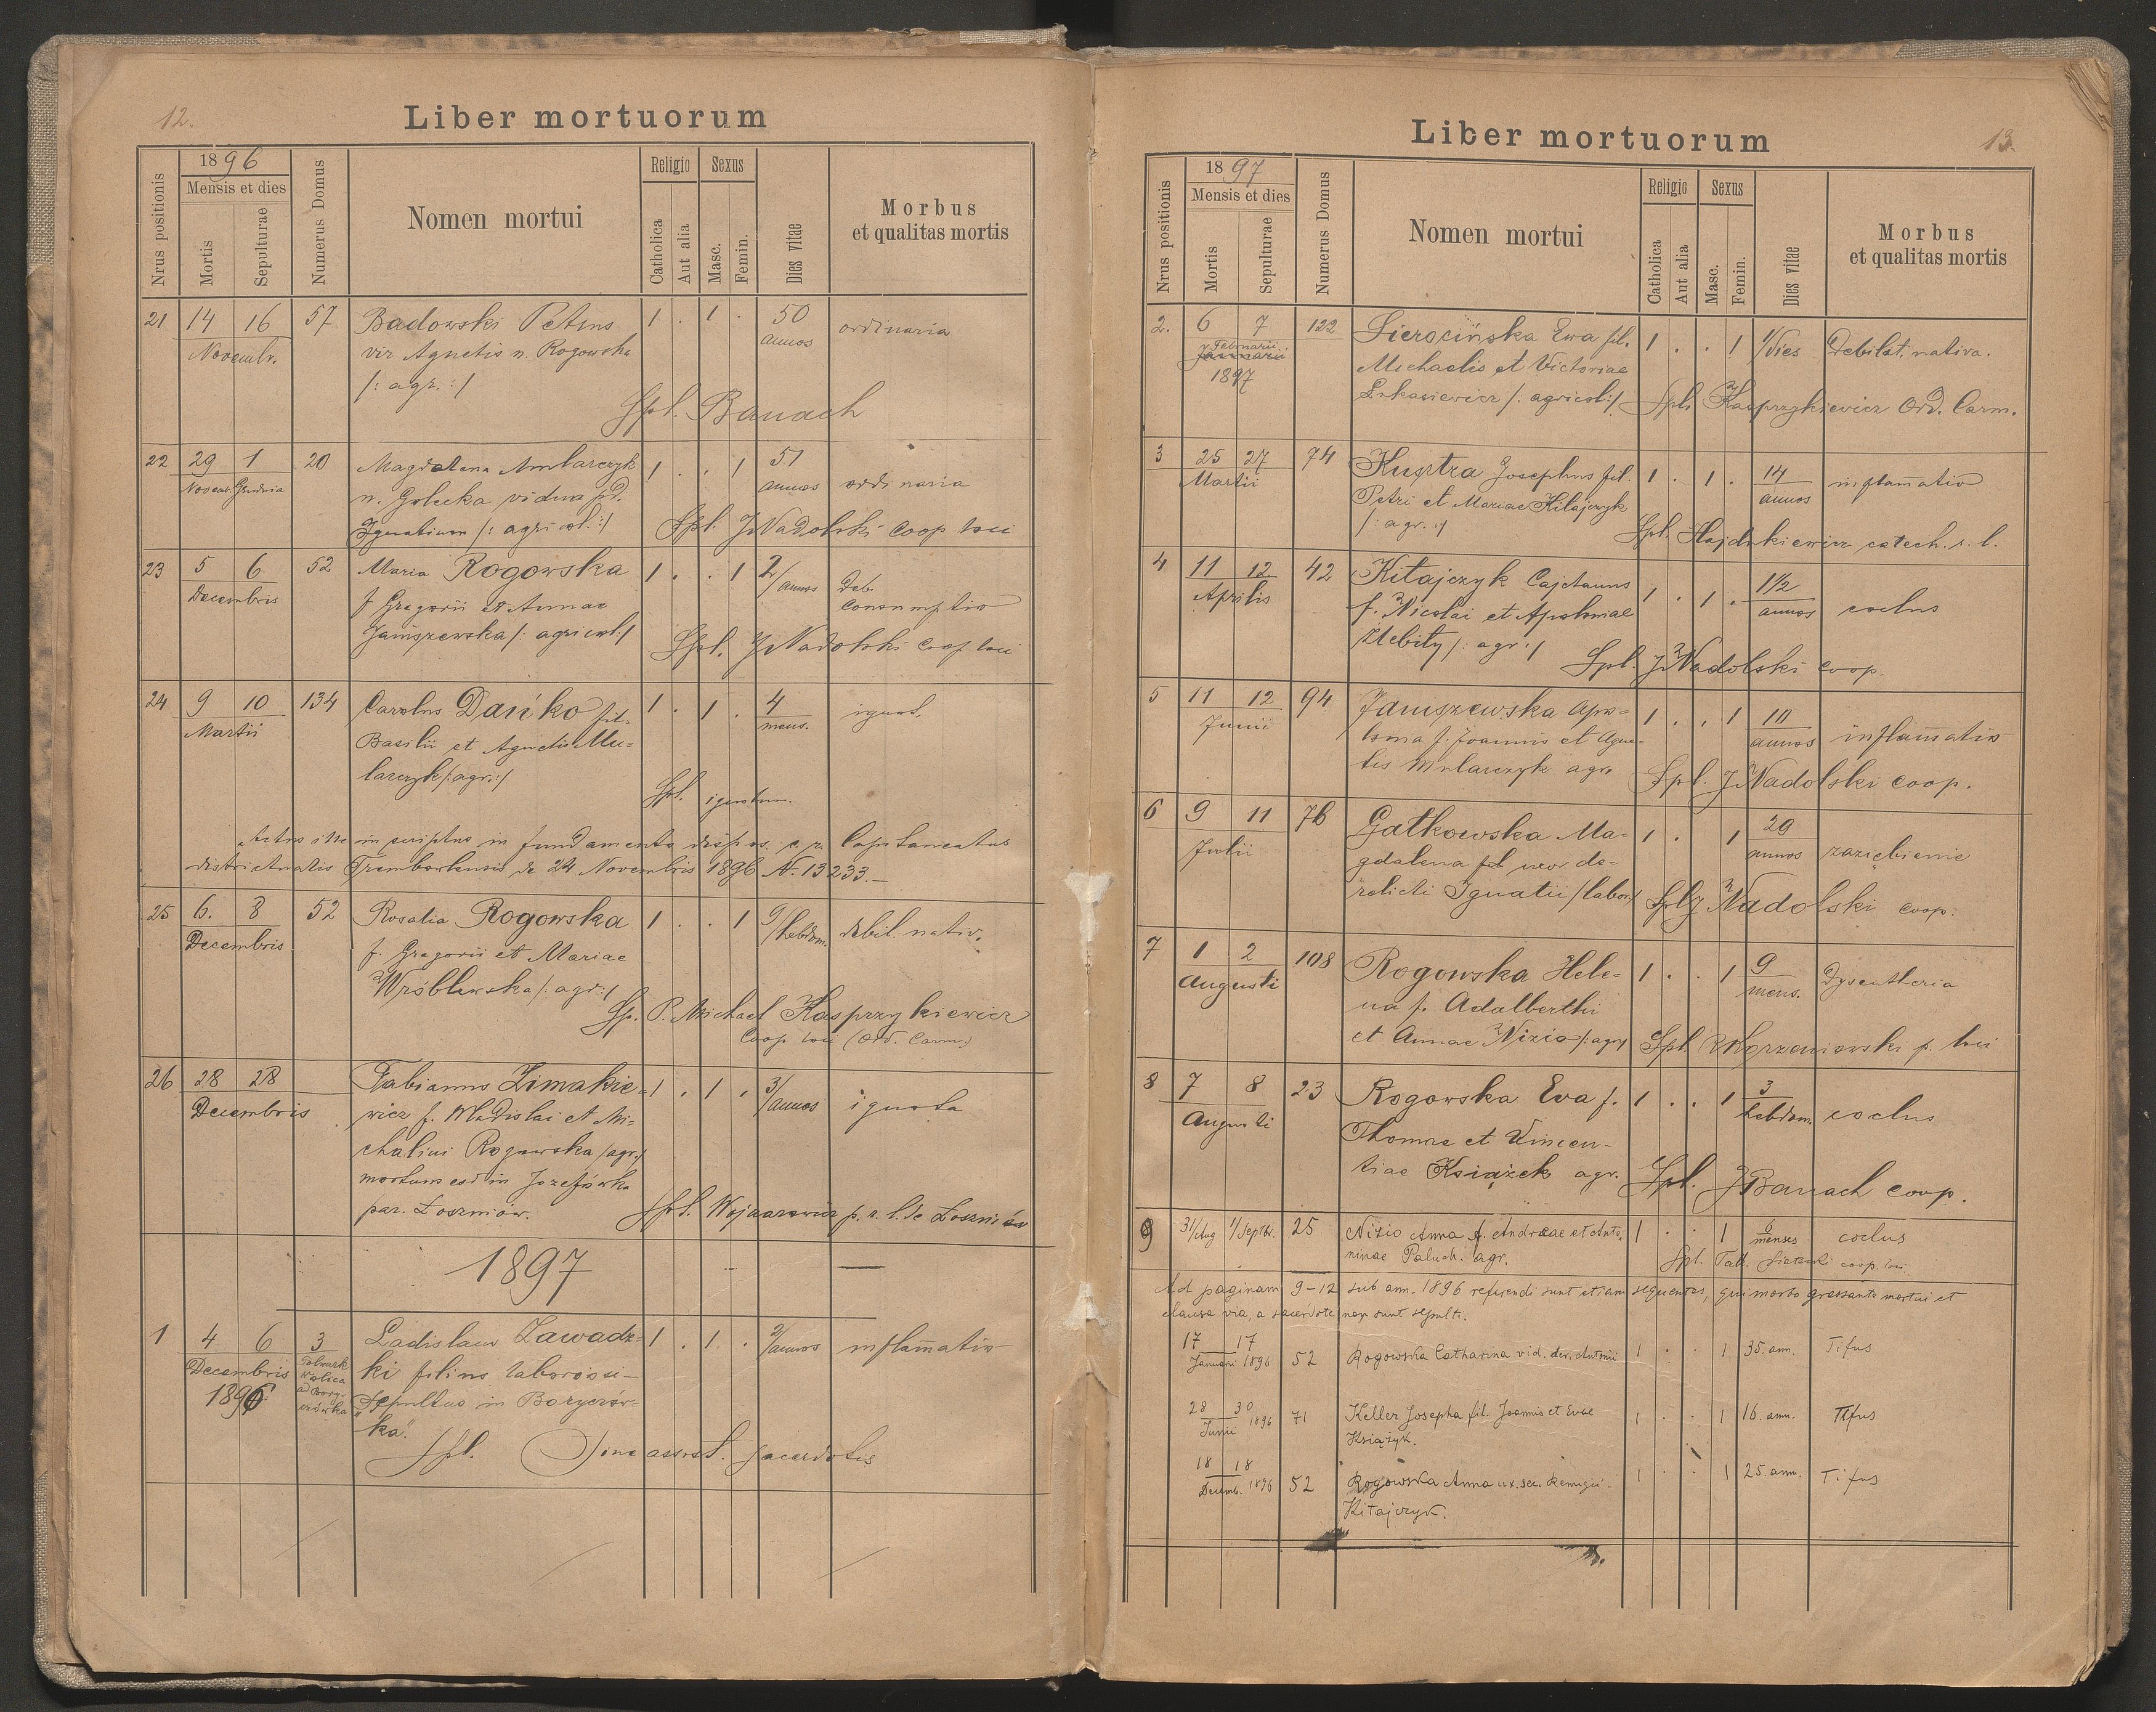 12.
Liber mortuorum
Nrus positionis
1896
Mensis et dies
Mortis
Sepulturae
Numerus Domus
Nomen mortui
Religio
Catholica
Aut alia
Sexus
Masc.
Femin.
Dies vitae
Morbus
et qualitas mortis
21 14 16 57 Badowski Petrus 1 . 1 . 50 ordinaria
Novembr. vir Agnetis n. Rogowska annos
/: agr. :/
Spl. Banach
22 29 1 20 Magdalena Amlarczyk 1 . . 1 51
Novem. Grudnia n. Golecka vidua pd. annos ordinaria
Ignatium /: agricol. :/ Spl. J Nadolski coop loci
23 5 6 52 Maria Rogowska 1 . . 1 2/annos Deb.
Decembris f Gregorii et Annae consumptio
Janiszewska /: agricol :/ Spl. J Nadolski coop loci
24 9 10 134 Carolus Dańko fil. 1 . 1 . 4 ignot.
Martii Basilii et Agnetis Mu= mens.
larczyk /: agr. :/
Spl. ignotum.
Actus iste inscriptus in fundamento dispos. c. r. Capitaneatus
districtualis Trembowlensis de 24 Novembris 1896 N. 13233.—
25 6. 8 52 Rosalia Rogowska 1 . . 1 9/hebdom. debil. nativ.
Decembris f. Gregorii et Mariae
Wróblewska /: agr :/
Sp. P. Michael Kasprzykiewicz
Coop loci (Ord. Carm.)
26 28 28 Fabianus Zimakie= 1 . 1 . 3/annos ignota
Decembris wicz f. Wladislai et Mi=
chalini Rogowska /agr./
mortuus est in Jozefówka
par. Łoszniów.
Spl. Wojnarowicz p. r. l. de Łoszniów
1897
1 4 6 3 Ladislaus Zawadz= 1 . 1 . 2/annos inflamatio
Decembris 1896 Folwark Wolica ad Boryczówka ki filius laboriosi—
Sepultus in Boryczów=
ka".
Spl. Sine assist. sacerdotis
13.
Liber mortuorum
Nrus positionis
1897
Mensis et dies
Mortis
Sepulturae
Numerus Domus
Nomen mortui
Religio
Catholica
Aut alia
Sexus
Masc.
Femin.
Dies vitae
Morbus
et qualitas mortis
2. 6 7 122 Sierocińska Ewa fil. 1 . . 1 1/Dies Debilit. nativa.
Februarii Januarii Michaelis et Victoriae
1897 Lukasiewicz /: agricol :/ Spl. Kasprzykiewicz Ord. Carm.
3 25 27 74 Kusztra Josephus fil. 1 . 1 . 14 inflamatio
Martii Petri et Mariae Kitajczyk annos
/: agr. :/
Spl. Hajdukiewicz catech. r. l.
4 11 12 42 Kitajczyk Cajetanus 1 . 1 . 1 1/2
Aprilis f. Nicolai et Apoloniae annos coclus
Zlebity /: agr :/
Spl. J Nadolski coop.
5 11 12 94 Janiszewska Apo= 1 . . 1 10
Junii lonia f. Joannis et Agne= annos inflamatio
tis Mularczyk agr.
Spl. J Nadolski coop.
6 9 11 76 Gatkowska Ma= 1 . 1 29
Julii gdalena fil uxor de= annos zaziębienie
relicti Ignatii /labor/ Spl J Nadolski coop.
7 1 2 108 Rogowska Hele= 1 . . 1 9 Dysentheria
Augusti na f. Adalberthi mens.
et Annae Nizio /: agr/ Spl. Korzeniowski p. loci
8 7 8 23 Rogowska Eva f. 1 . . 1 3
Augusti Thomae et Vincen- hebdom. coclus
tiae Książek agr.
Spl. J Banach coop.
9 31/Aug 1/Septbr. 25 Nizio Anna f. Andreae et Anto= 1 . . 1 6 menses coclus
ninae Paluch. agr. Spl. coop. loci
Ad paginam 9-12 sub ann. 1896 referendi sunt etiam sequentes, qui morbo grassante mortui et
clausa via, a sacerdote non sunt sepulti.
17 17
Januari 1896 52 Rogowska Catharina vid. der. Antonii 1 . . 1 35. ann. Tifus
28 30
Junii 1896 71 Keller Josepha fil. Joannis et Evae 1 . . 1 16. ann. Tifus
Książyk.
18 18
Decemb. 1896 52 Rogowska Anna ux. sec. Remigii 1 . . 1 25. ann. Tifus
Kitajczyk.